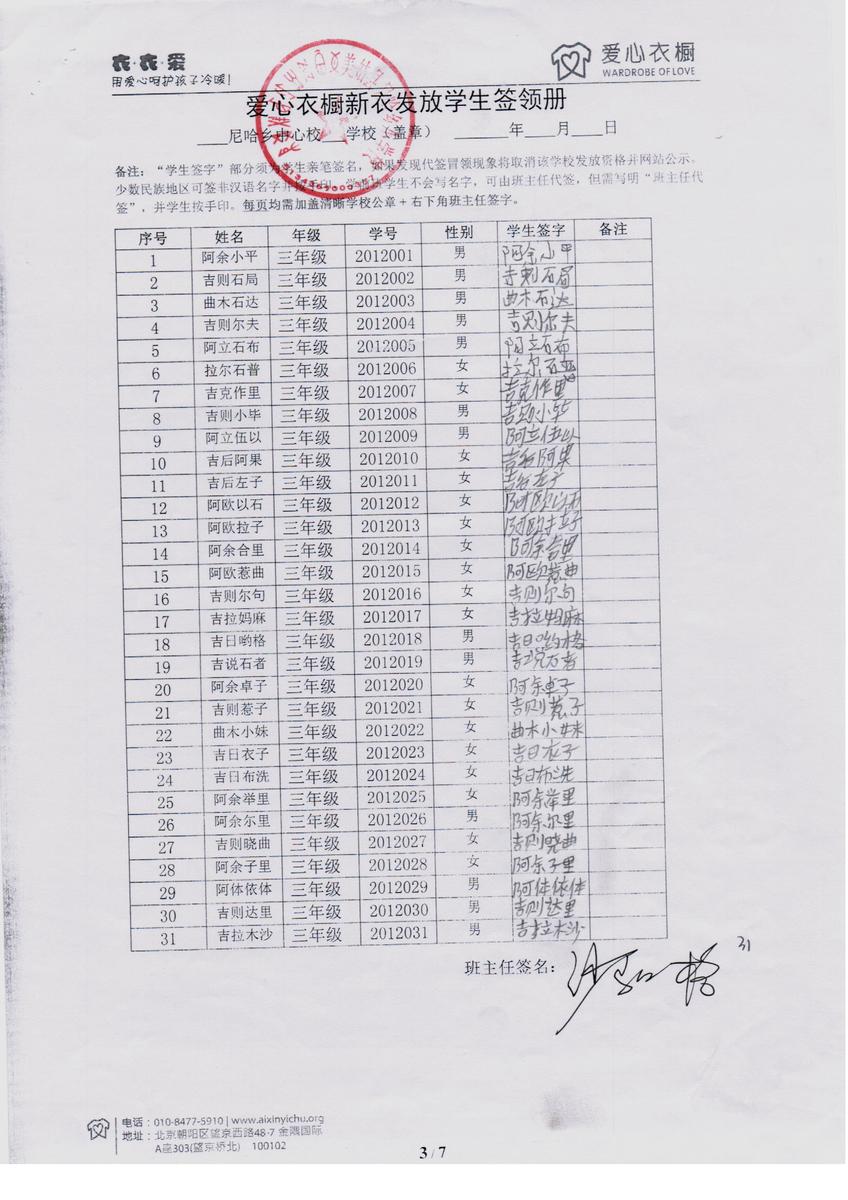 衣·衣·爱
用爱心呵护孩子冷暖!
爱心衣橱
WARDROBE OF LOVE
爱心衣橱新衣发放学生签领册
____尼哈乡中心校___学校(盖章) ______年____月____日
备注:“学生签字”部分须为学生亲笔签名,如果发现代签冒领现象将取消该学校发放资格并网站公示。
少数民族地区可签非汉语名字并按手印。学生不会写名字,可由班主任代签,但需写明“班主任代
签”,并学生按手印。每页均需加盖清晰学校公章+右下角班主任签字。
序号 姓名 年级 学号 性别 学生签字 备注
1 阿余小平 三年级 2012001 男 阿余小平
2 吉则石局 三年级 2012002 男 吉则石局
3 曲木石达 三年级 2012003 男 曲木石达
4 吉则尔夫 三年级 2012004 男 吉则尔夫
5 阿立石布 三年级 2012005 男 阿立石布
6 拉尔石普 三年级 2012006 女 拉尔石普
7 吉克作里 三年级 2012007 女 吉克作里
8 吉则小毕 三年级 2012008 男 吉则小毕
9 阿立伍以 三年级 2012009 男 阿立伍以
10 吉后阿果 三年级 2012010 女 吉后阿果
11 吉后左子 三年级 2012011 女 吉后左子
12 阿欧以石 三年级 2012012 女 阿欧以石
13 阿欧拉子 三年级 2012013 女 阿欧拉子
14 阿余合里 三年级 2012014 女 阿余合里
15 阿欧惹曲 三年级 2012015 女 阿欧惹曲
16 吉则尔句 三年级 2012016 女 吉则尔句
17 吉拉妈麻 三年级 2012017 女 吉拉妈麻
18 吉日哟格 三年级 2012018 男 吉日哟格
19 吉说石者 三年级 2012019 男 吉说石者
20 阿余卓子 三年级 2012020 女 阿余卓子
21 吉则惹子 三年级 2012021 女 吉则惹子
22 曲木小妹 三年级 2012022 女 曲木小妹
23 吉日衣子 三年级 2012023 女 吉日衣子
24 吉日布洗 三年级 2012024 女 吉日布洗
25 阿余举里 三年级 2012025 女 阿余举里
26 阿余尔里 三年级 2012026 男 阿余尔里
27 吉则晓曲 三年级 2012027 女 吉则晓曲
28 阿余子里 三年级 2012028 女 阿余子里
29 阿体依体 三年级 2012029 男 阿体依体
30 吉则达里 三年级 2012030 男 吉则达里
31 吉拉木沙 三年级 2012031 男 吉拉木沙
班主任签名:
31
电话:010-8477-5910 | www.aixinyichu.org
地址:北京朝阳区望京西路48-7 金隅国际
A座303(望京桥北) 100102
3 / 7